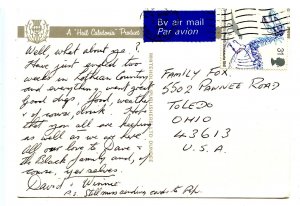 A "Hail Caledonia" Product
By air mail
Par avion
Well, what about ye?
Have just enjoyed two
weeks in Lothean Country
and everything went great
Good digs, food, weather
& of course, drink. Hope
that you all are keeping
as well as we are here
All our love to Dave &
the Black family and, of
course, yerselves.
David & Winnie
P.S. Still miss sending cards to
FAMILY FOX,
5502 PAWNEE ROAD
TOLEDO
OHIO
43613
U.S.A.
31